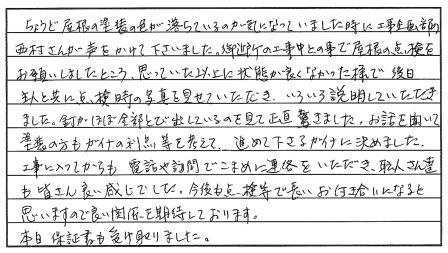 ちょうど屋根の塗装の色が落ちているのが気になっていました時に工事企画部の
西村さんが声をかけて下さいました。御近所の工事中との事で屋根の点検を
お願いしましたところ、思っていた以上に状態が良くなかった様で 後日
主人と共に点検時の写真を見せていただき、いろいろ説明していただき
ました。釘がほぼ全部とび出しているのを見て正直驚きました。お話を聞いて
塗装の方もガイナの利点等を考えて、進めて下さるガイナに決めました。
工事に入ってからも 電話や訪問でこまめに連絡をいただき、職人さん達
も皆さん良い感じでした。今後も点検等で長いお付き合いになると
思いますので良い関係を期待しております。
本日 保証書も受け取りました。